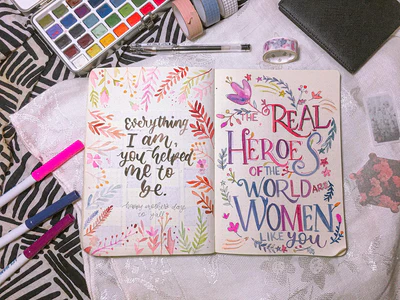 Everything
I am,
you helped
me to
be.
happy mothers day
THE REAL
HEROES
OF THE
WORLD ARE
WOMEN
LIKE YOU